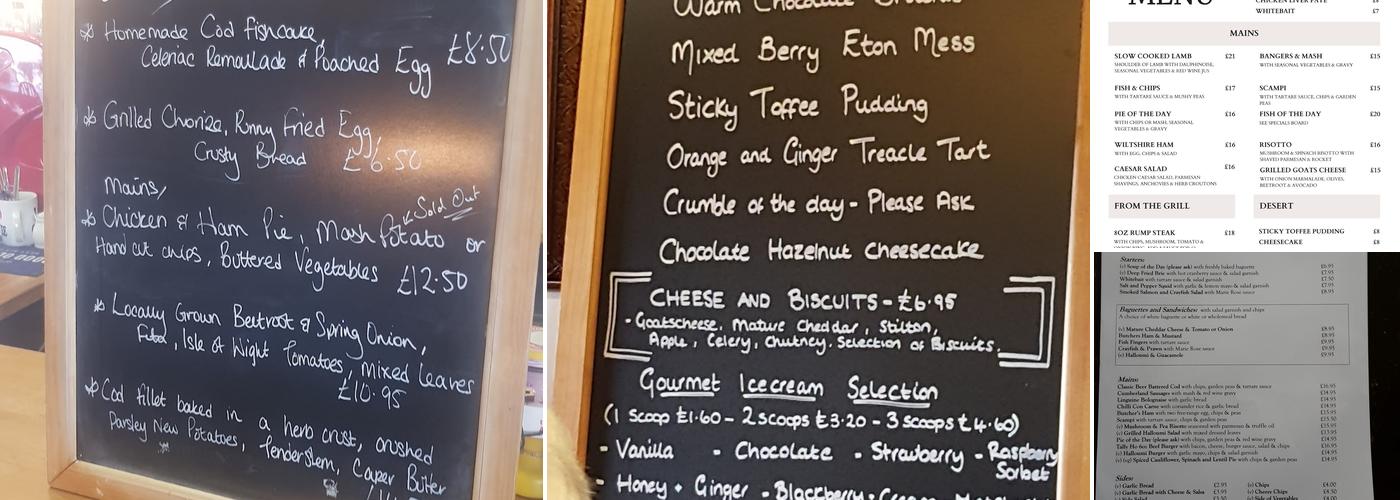 Homemade Cod fishcake,
Celeriac Remoulade & Poached Egg £8.50
Grilled Chorizo, Runny Fried Egg,
Crusty Bread £6.50
Mains,
Sold Out
Chicken & Ham Pie, Mash Potato or
Hand cut chips, Buttered Vegetables £12.50
Locally Grown Beetroot & Spring Onion,
Feta, Isle of Wight Tomatoes, mixed Leaves
£10.95
Cod fillet baked in a herb crust, crushed
Parsley New Potatoes, Tenderstem, Caper Butter
Warm Chocolate
Mixed Berry Eton Mess
Sticky Toffee Pudding
Orange and Ginger Treacle Tart
Crumble of the day - Please Ask
Chocolate Hazelnut Cheesecake
CHEESE AND BISCUITS - £6.95
- Goatscheese, Mature Cheddar, Stilton,
Apple, Celery, Chutney. Selection of Biscuits.
Gourmet Icecream Selection
(1 Scoop £1.60 - 2 scoops £3.20 - 3 scoops £4.60)
- Vanilla - Chocolate - Strawberry - Raspberry
Sorbet
- Honey + Ginger - Blackberry
MENU
WHITEBAIT £7
MAINS
SLOW COOKED LAMB £21
SHOULDER OF LAMB WITH DAUPHINOISE,
SEASONAL VEGETABLES & RED WINE JUS
FISH & CHIPS £17
WITH TARTARE SAUCE & MUSHY PEAS
PIE OF THE DAY £16
WITH CHIPS OR MASH, SEASONAL
VEGETABLES & GRAVY
WILTSHIRE HAM £16
WITH EGG, CHIPS & SALAD
CAESAR SALAD £16
CHICKEN CAESAR SALAD, PARMESAN
SHAVINGS, ANCHOVIES & HERB CROUTONS
BANGERS & MASH £15
WITH SEASONAL VEGETABLES & GRAVY
SCAMPI £15
WITH TARTARE SAUCE, CHIPS & GARDEN
PEAS
FISH OF THE DAY £20
SEE SPECIALS BOARD
RISOTTO £16
MUSHROOM & SPINACH RISOTTO WITH
SHAVED PARMESAN & ROCKET
GRILLED GOATS CHEESE £15
WITH ONION MARMALADE, OLIVES,
BEETROOT & AVOCADO
FROM THE GRILL
8OZ RUMP STEAK £18
WITH CHIPS, MUSHROOM, TOMATO &
DESERT
STICKY TOFFEE PUDDING £8
CHEESECAKE £8
Starters:
(v) Soup of the Day (please ask) with freshly baked baguette £6.95
(v) Deep Fried Brie with hot cranberry sauce & salad garnish £7.95
Whitebait with tartare sauce & salad garnish £7.50
Salt and Pepper Squid with garlic & lemon mayo & salad garnish £7.95
Smoked Salmon and Crayfish Salad with Marie Rose sauce £8.95
Baguettes and Sandwiches: with salad garnish and chips
A choice of white baguette or white or wholemeal bread
(v) Mature Cheddar Cheese & Tomato or Onion £8.95
Butchers Ham & Mustard £8.95
Fish Fingers with tartare sauce £9.95
Crayfish & Prawn with Marie Rose sauce £9.95
(v) Halloumi & Guacamole £9.95
Mains:
Classic Beer Battered Cod with chips, garden peas & tartare sauce £16.95
Cumberland Sausages with mash & red wine gravy £14.95
Linguine Bolognaise with garlic bread £14.95
Chilli Con Carne with coriander rice & garlic bread £14.95
Butcher's Ham with two free-range egg, chips & peas £13.95
Scampi with tartare sauce, chips & garden peas £15.50
(v) Mushroom & Pea Risotto seasoned with parmesan & truffle oil £15.95
(v) Grilled Halloumi Salad with mixed dressed leaves £13.95
Pie of the Day (please ask) with chips, garden peas & red wine gravy £14.95
Tally Ho 6oz Beef Burger with bacon, cheese, burger sauce, salad & chips £16.95
(v) Halloumi Burger with garlic mayo, chips & salad garnish £14.95
(v) (vg) Spiced Cauliflower, Spinach and Lentil Pie with chips & garden peas £14.95
Sides:
(v) Garlic Bread £2.95
(v) Garlic Bread with Cheese & Salsa £3.95
(v) Chips £4.00
(v) Cheesy Chips £4.50